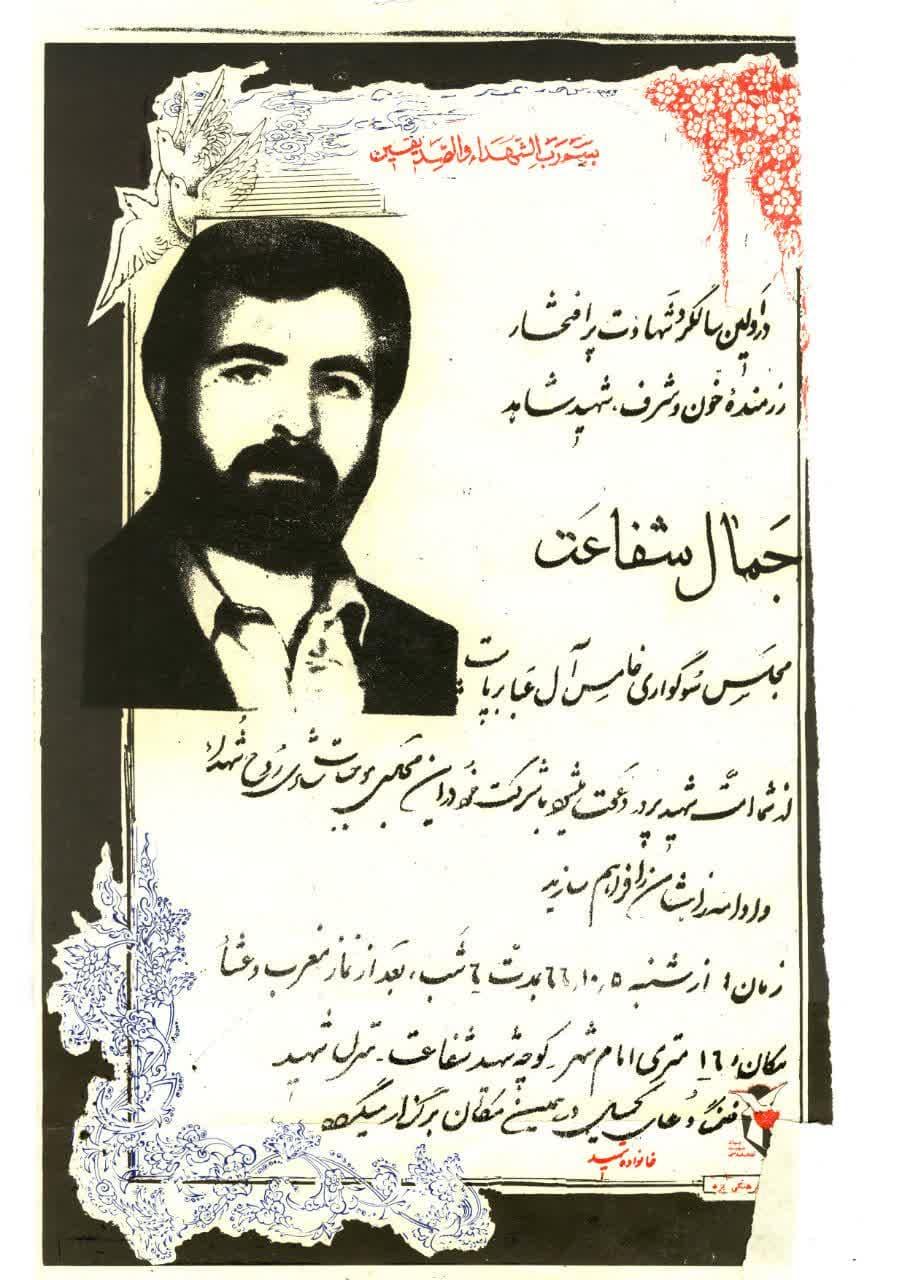 بسم رب الشهداء والصدیقین
در اولین سالگرد شهادت پر افتخار
رزمندهٔ خون و شرف، شهید شاهد
جمال شفاعت
مجلس سوگواری خامس آل عبا برپاست
از شما امت شهید پرور دعوت میشود با شرکت خود در این مجلس موجبات شادی روح شهدا
و ادامه راهشان را فراهم سازید
زمان: از شنبه ۶۶٫۱۰٫۵ بمدت ۶ شب، بعد از نماز مغرب و عشاء
مکان: ۱۶ متری امام شهر ـ کوچه شهید شفاعت ـ منزل شهید
دعای کمیل در همین مکان برگزار میگردد
خانواده شهید